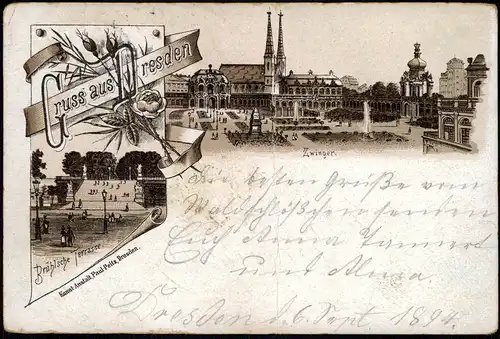 Gruss aus Dresden
Zwinger.
Brühlsche Terrasse
Kunst-Anstalt Paul Peitz, Dresden.
Die besten Grüße vom
Waldschlößchen senden
Euch Anna
und Alma.
Dresden d. 6. Sept. 1894.